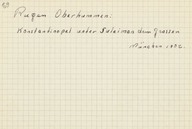 Eugen Oberhummer:
Konstantinopel unter Suleiman dem Grossen
München 1902.